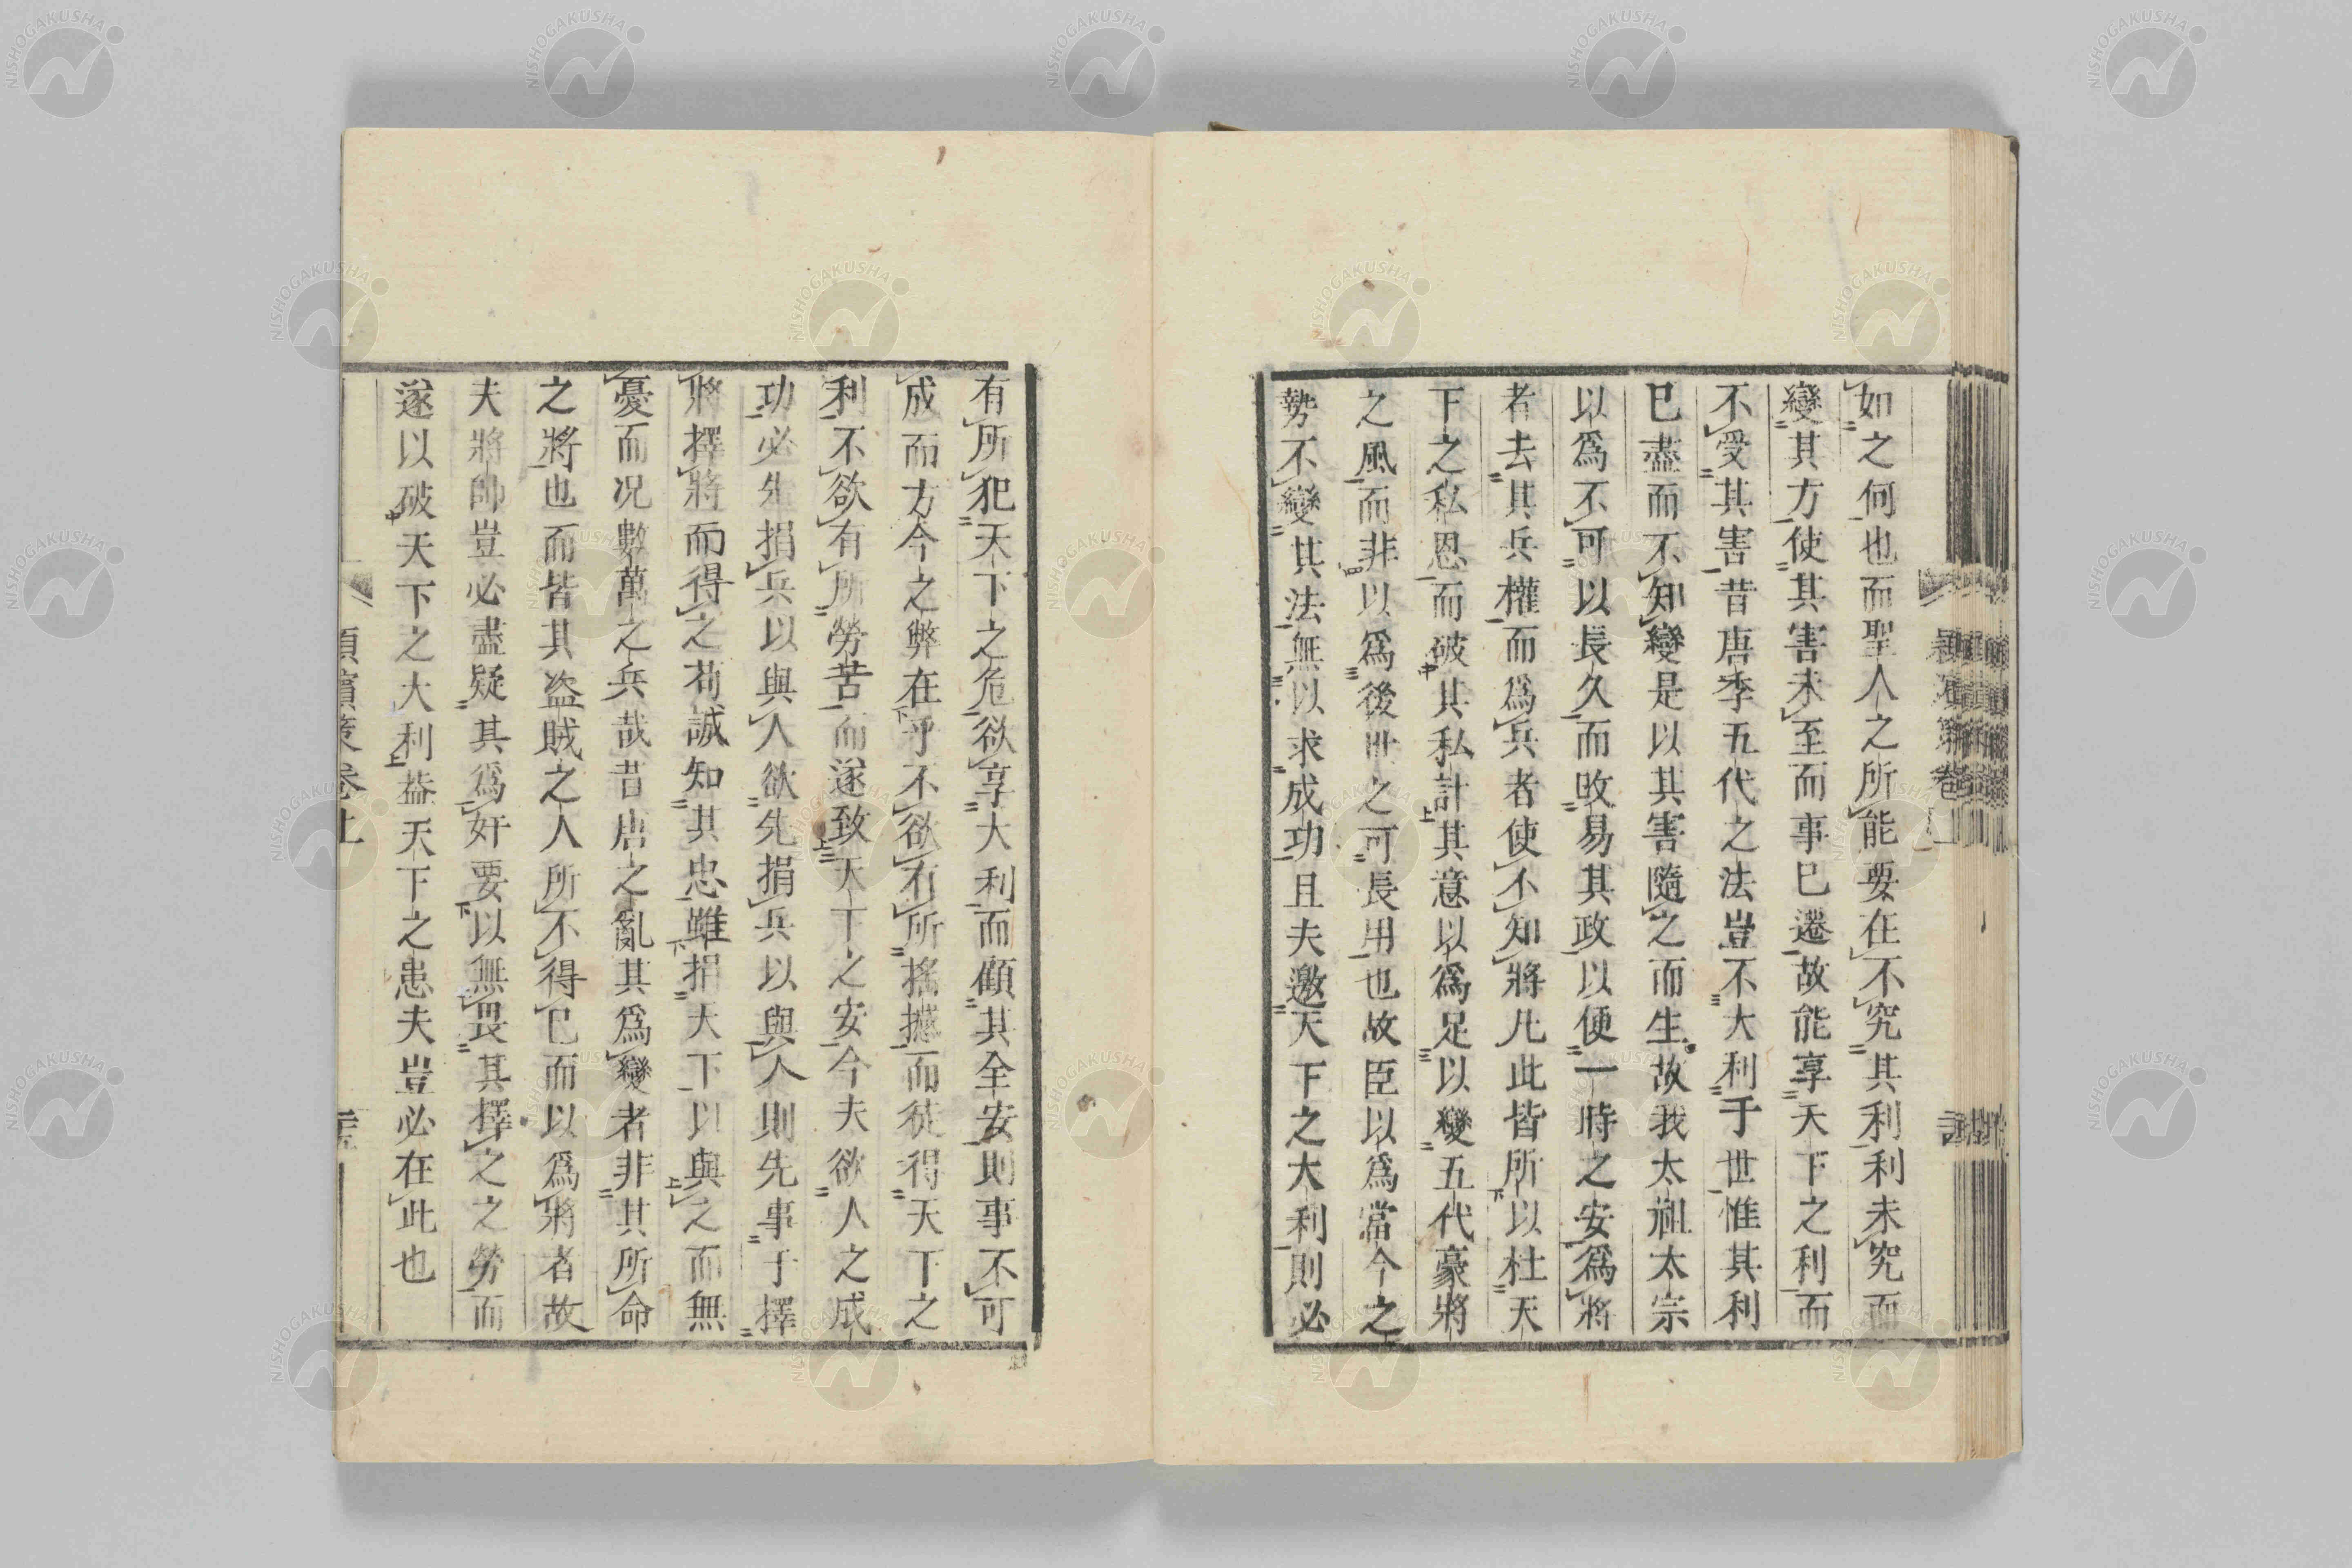 如之何也而聖人之所能要在不究其利利未究而
變其方使其害未至而事已遷故能享天下之利而
不受其害昔唐季五代之法豈不大利于世惟其利
已盡而不知變是以其害隨之而生故我太祖太宗
以爲不可以長久而改易其政以便一時之安爲將
者去其兵權而爲兵者使不知將凡此皆所以杜天
下之私恩而破其私計其意以爲足以變五代豪將
之風而非以爲後世之可長用也故臣以爲當今之
勢不變其法無以求成功且夫邀天下之大利則必
有所犯天下之危欲享大利而顧其全安則事不可
成而方今之弊在乎不欲有所搖撼而徒得天下之
利不欲有所勞苦而遂致天下之安今夫欲人之成
功必先捐兵以與人欲先捐兵以與人則先事于擇
將擇將而得之苟誠知其忠雖捐天下以與之而無
憂而况數萬之兵哉昔唐之亂其爲變者非其所命
之將也而皆其盜賊之人所不得已而以爲將者故
夫將帥豈必盡疑其爲奸要以無畏其擇之之勞而
遂以破天下之大利益天下之患夫豈必在此也
潁濱策卷上
NISHOGAKUSHA